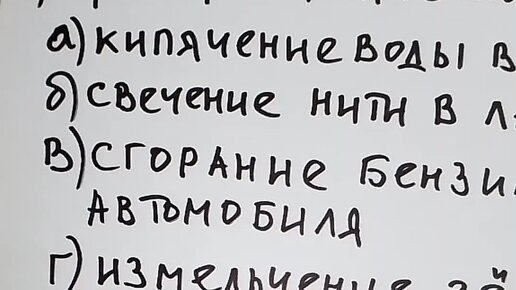 а) кипячение воды в
б) свечение нити в
в) сгорание
автомобиля
г) измельчение